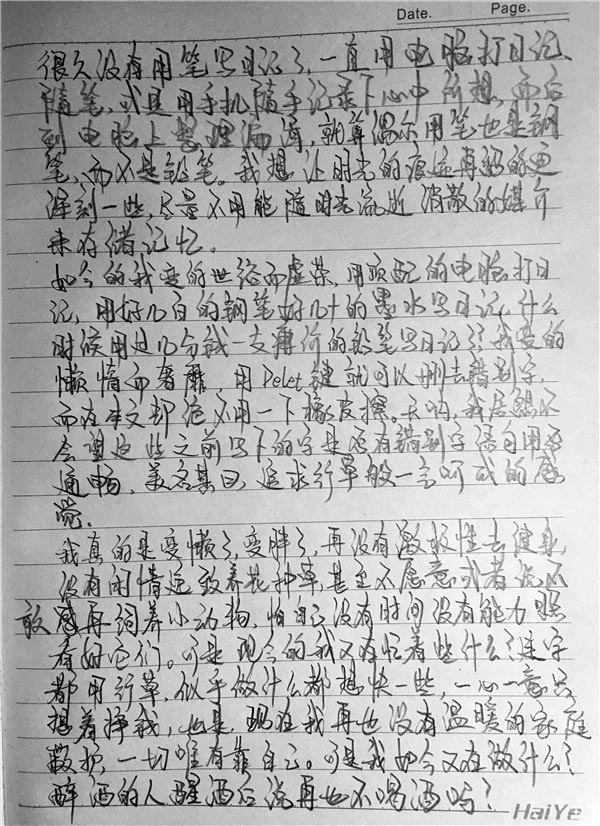 Date. Page.
很久没有用笔写日记了,一直用电脑打日记、
随笔,或是用手机随手记录下心中所想,而后
到电脑上整理编译,就算偶尔用笔也是钢
笔、而不是铅笔。我想让时光的痕迹再留的更
深刻一些,尽量不用能随时光流逝消散的媒介
来存储记忆。
如今的我变的世俗而虚荣,用顶配的电脑打日
记,用好几百的钢笔好几十的墨水写日记,什么
时候用过几分钱一支廉价的铅笔写日记了?我变的
懒惰而奢靡,用Delet键就可以删去错别字,
而在本文却绝不用一下橡皮擦。天呐,我居然不
会理这些之前写下的字是否有错别字语句用否
通畅,美名其曰,追求行草般一气呵成的感
觉.
我真的是变懒了,变胖了,再没有激极性去健身,
没有闲情逸致养花种草,甚至不愿意或者说不
敢感再饲养小动物,怕自己没有时间没有能力照
看好它们。可是现今的我又在忙着些什么?连字
都用行草,似乎做什么都想快一些,一心一意只
想着挣钱,也是,现在我再也没有温暖的家庭
散护,一切唯有靠自己。可是我如今又在做什么?
醉酒的人醒酒后说再也不喝酒吗?
HaiYe